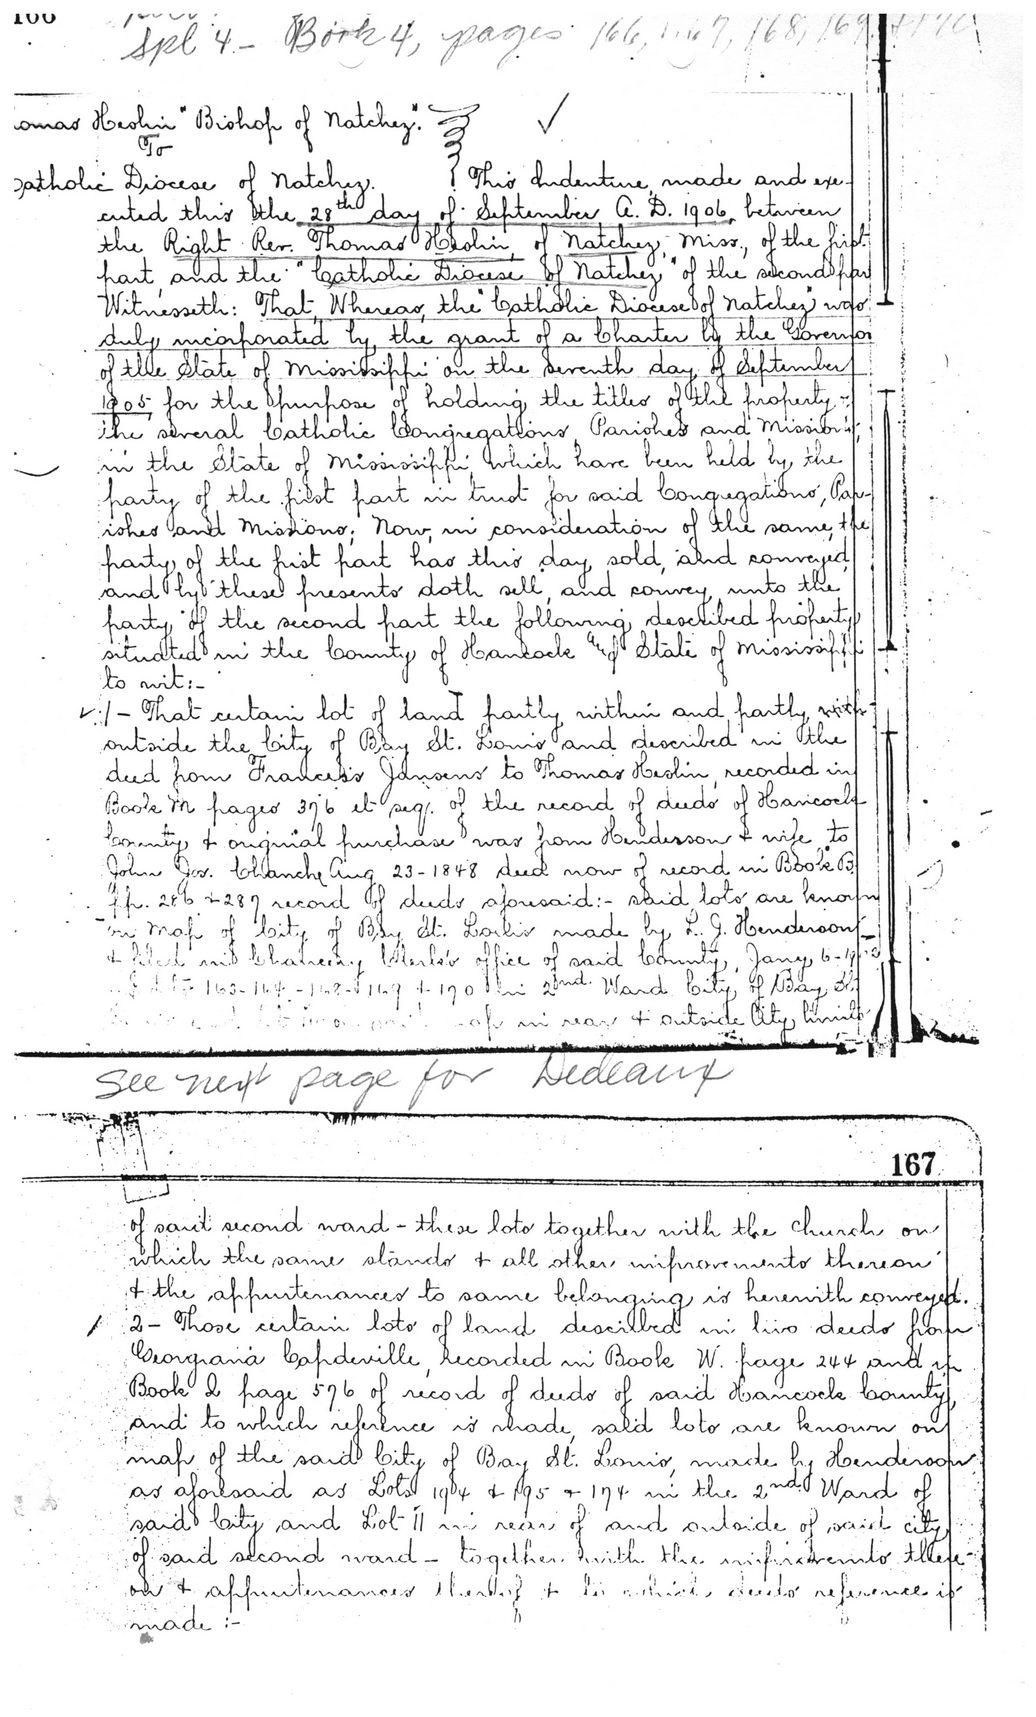 166
Spl 4 - Book 4, pages 166, 167, 168, 169, +170
omas Heslin "Bishop of Natchez".
To
Catholic Diocese of Natchez. This Indenture, made and exe-
cuted this the 28th day of September A. D. 1906, between
the Right Rev. Thomas Heslin, of Natchez, Miss., of the first
part, and the "Catholic Diocese of Natchez" of the second par
Witnesseth: That, Whereas, the "Catholic Diocese of Natchez" was
duly incorporated by the grant of a Charter by the Governor
of the State of Mississippi on the seventh day of September
1905, for the purpose of holding the titles of the property -
the several Catholic Congregations, Parishes and Missions,
in the State of Mississippi, which have been held by the
party of the first part in trust for said Congregations, Par-
ishes and Missions; Now, in consideration of the same, the
party of the fist part has this day sold, and conveyed,
and by these presents doth sell, and convey, unto the
party of the second part the following described property
situated in the County of Hancock and State of Mississippi
to wit:-
1 - That certain lot of land partly within and partly
outside the City of Bay St. Louis and described in the
deed from Francess Jansens to Thomas Heslin, recorded in
Book M pages 376 et seq. of the record of deeds of Hancock
County & original purchase was from Henderson & wife to
John Jos. Chanche Aug 23-1848 deed now of record in Book B
pp. 286 & 287 record of deeds aforesaid:- said lots are known
on Map of City of Bay St. Louis made by L. J. Henderson
& filed in Chancery Clerk's office of said County, Jany 6-
163-164-168-169 & 170 in 2nd Ward City of Bay St.
map in rear & outside City limits
See next page for Dedeaux
167
of said second ward - these lots together with the church on
which the same stands & all other improvements thereon
& the appurtenances to same belonging is herewith conveyed.
2 - Those certain lots of land described in two deeds from
Georgiana Capdeville, recorded in Book W. page 244 and in
Book Q page 576 of record of deeds of said Hancock County,
and to which reference is made, said lots are known on
map of the said City of Bay St. Louis, made by Henderson
as aforesaid as Lots 194 & 195 & 174 in the 2nd Ward of
said City and Lot 11 in rear of and outside of said city
of said second ward - together with the improvements there-
on & appurtenances thereof & to which deeds reference is
made :-